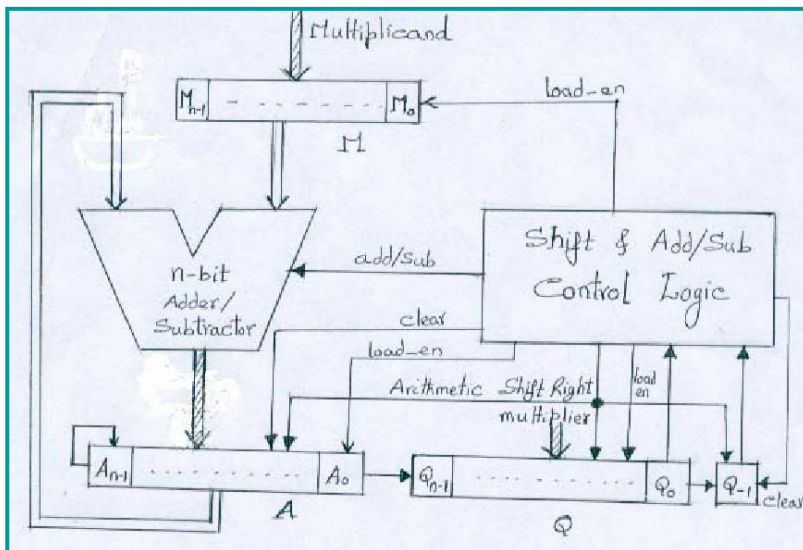 Multiplicand
M_{n-1} - - - - - - - M_0
load-en
M
n-bit
Adder/
Subtractor
add/sub
Shift & Add/Sub
Control Logic
clear
load-en
Arithmetic Shift Right
load
en
multiplier
A_{n-1} - - - - - - - A_0
A
Q_{n-1} - - - - - - - Q_0
Q
Q_{-1}
clear